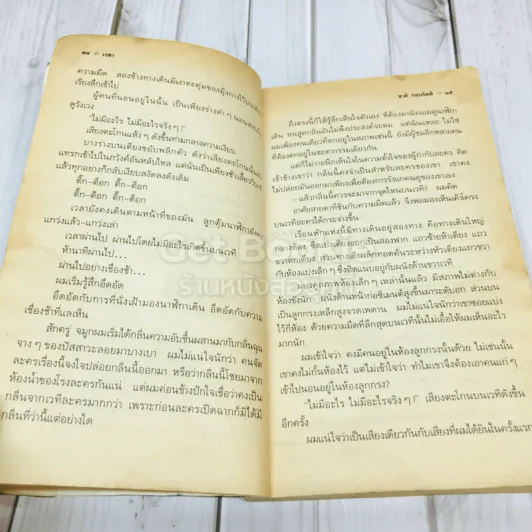 ๑๔ ○ เวลา
ความมืด สองข้างทางเดินมีเงาตะคุ่มของมุ้งกางไว้บนเตียง
เรียงลึกเข้าไป
ผู้คนที่นอนอยู่ในนั้น เป็นเพียงร่างดำ ๆ นอนสงบนิ่ง
ดูวังเวง
“ไม่มีอะไร ไม่มีอะไรจริง ๆ!”
เสียงตะโกนแห้ง ๆ ดังขึ้นท่ามกลางความเงียบ
บางร่างบนเตียงขยับพลิกตัว ดังว่าเสียงตะโกนนั้น
แทรกเข้าไปในภวังค์อันหลับใหล แต่นั่นเป็นเพียงชั่วเสี้ยววินาที
แล้วทุกอย่างก็กลับเงียบสงัดลงดังเดิม
ติ๊ก-ต็อก ติ๊ก-ต็อก
ติ๊ก-ต็อก ติ๊ก-ต็อก
เวลายังคงเดินตามหน้าที่ของมัน ลูกตุ้มนาฬิกายังคง
แกว่งแล้ว-แกว่งเล่า
เวลาผ่านไป ผ่านไปโดยไม่มีอะไรเกิดขึ้นบนเวที
ห้านาทีผ่านไป...
ผ่านไปอย่างเชื่องช้า...
ผมเริ่มรู้สึกอึดอัด
อึดอัดกับการที่นั่งเฝ้ามองนาฬิกาเดิน อึดอัดกับความ
เชื่องช้าที่แลเห็น
สักครู่ จมูกผมเริ่มได้กลิ่นความอับชื้นผสานมากับกลิ่นฉุน
จาง ๆ ของปัสสาวะลอยมาบางเบา ผมไม่แน่ใจนักว่า คนจัด
ละครเรื่องนี้จงใจปล่อยกลิ่นนี้ออกมา หรือว่ากลิ่นนี้โชยมาจาก
ห้องน้ำของโรงละครกันแน่ แต่ผมค่อนข้างปักใจเชื่อว่าคงเป็น
กลิ่นจากเวทีละครมากกว่า เพราะก่อนละครเปิดฉากก็มิได้มี
กลิ่นที่ว่านี้แต่อย่างใด
ชาติ กอบจิตติ ○ ๑๕
ถึงตรงนี้ก็ให้รู้สึกเห็นใจตัวเอง ที่ต้องมานั่งมองดูนาฬิกา
เดิน ทนสูดกลิ่นอันไม่พึงประสงค์จะดม แต่นั่นแหละ ไม่ใช่
ผมเพียงคนเดียวที่ตกอยู่ในสภาพเช่นนี้ ยังมีผู้ชมอีกหลายคน
ที่ต้องตกอยู่ในชะตากรรมเดียวกัน
แต่ก็ไม่วายนึกเห็นใจในความตั้งใจของผู้กำกับละคร คิด
เข้าข้างเขาว่า กลิ่นนี้คงจำเป็นสำหรับละครของเขา เขาคง
ไม่ปล่อยมันออกมาเพียงเพื่อต้องการรังแกคนดูของเขาเอง
“ละครเรื่องนี้ควรจะมาจากจุดไหนบนเวที?” ผมคิด
อาศัยสายตาที่ชินกับความมืดแล้ว จึงพอมองเห็นเค้าโครง
บนเวทีละครได้กระจ่างขึ้น
เรือนพักแห่งนี้มีทางเดินอยู่สองทาง คือทางเดินใหญ่
กลางห้อง ซึ่งแบ่งเตียงออกเป็นสองฟาก แถวซ้ายห้าเตียง แถว
ขวาหกเตียง ส่วนทางเดินเล็กทอดคั่นระหว่างหัวเตียงแถวขวา
กับห้องแบ่งเล็ก ๆ ซึ่งติดแนบอยู่กับผนังด้านขวาเวที
หน้าห้องเล็ก ๆ เหล่านั้นแล้ว มีสภาพไม่ต่างกับ
ห้องขังนัก ผนังด้านหน้าก่ออิฐมอญสูงขึ้นมาระดับอก ส่วนบน
เป็นลูกกรงเหล็กสูงจรดเพดาน ผมไม่แน่ใจนักว่าเขาซอยแบ่ง
ไว้กี่ห้อง ด้วยความมืดที่ลึกสุดบนเวทีนั้นไม่เอื้อให้ผมเห็นอะไร
มากนัก
ผมเข้าใจว่า คงมีคนอยู่ในห้องลูกกรงนั้นด้วย ไม่เช่นนั้น
เขาคงไม่กั้นห้องไว้ แต่ไม่เข้าใจว่า ทำไมเราจึงต้องเอาคนแก่ ๆ
เข้าไปนอนอยู่ในห้องลูกกรง?
“ไม่มีอะไร ไม่มีอะไรจริง ๆ!” เสียงตะโกนบนเวทีดังขึ้น
อีกครั้ง
ผมแน่ใจว่าเป็นเสียงเดียวกันกับเสียงที่ผมได้ยินในครั้งแรก
ร้านหนังสือ